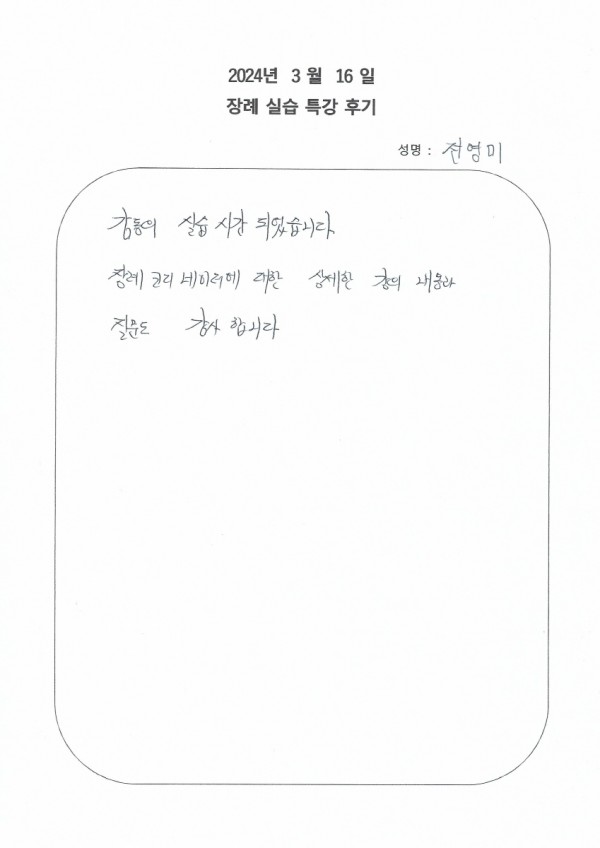 2024년 3 월 16 일
장례 실습 특강 후기
성명 : 전영미
감동의 실습 시간 되었습니다
장례 코디 네이터에 대한 상세한 강의 내용과
질문도 감사 합니다